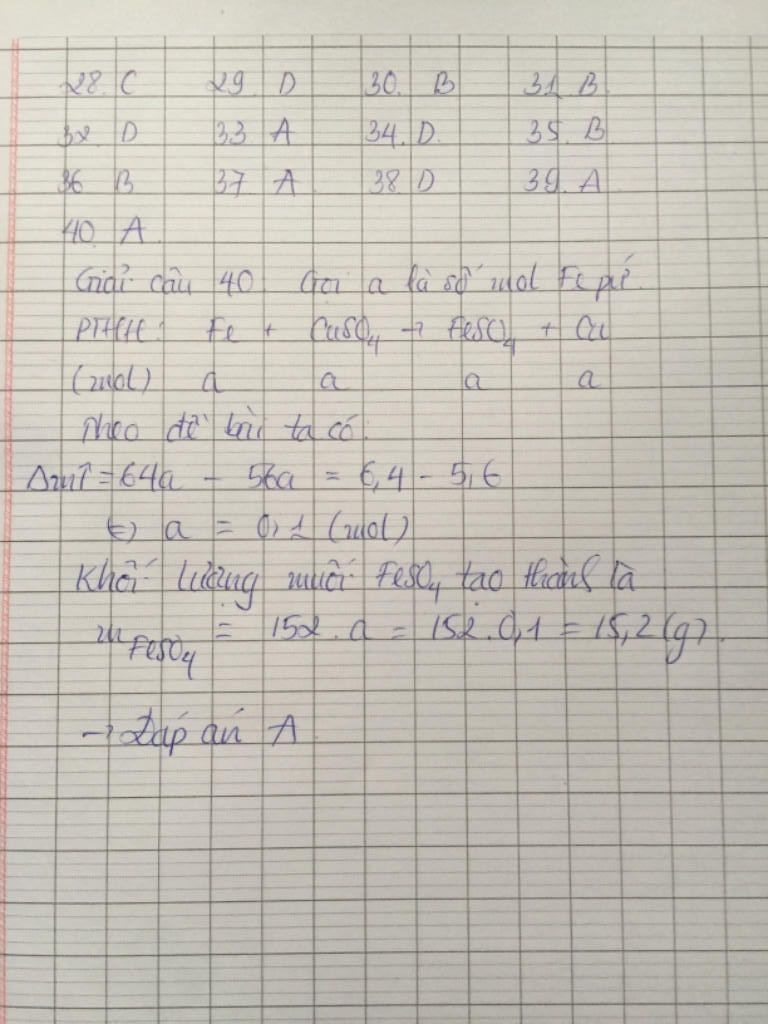 28. C 29 D 30. B 31 B
32 D 33 A 34. D. 35. B
36 B 37 A 38 D 39. A
40 A
Giải câu 40. Gọi a là số mol Fe pứ.
PTHH: Fe + CuSO4 → FeSO4 + Cu
(mol) a a a a
Theo đề bài ta có:
Δm↑ = 64a - 56a = 6,4 - 5,6
⇔ a = 0,1 (mol)
Khối lượng muối FeSO4 tạo thành là
mFeSO4 = 152. a = 152.0,1 = 15,2 (g).
→ Đáp án A